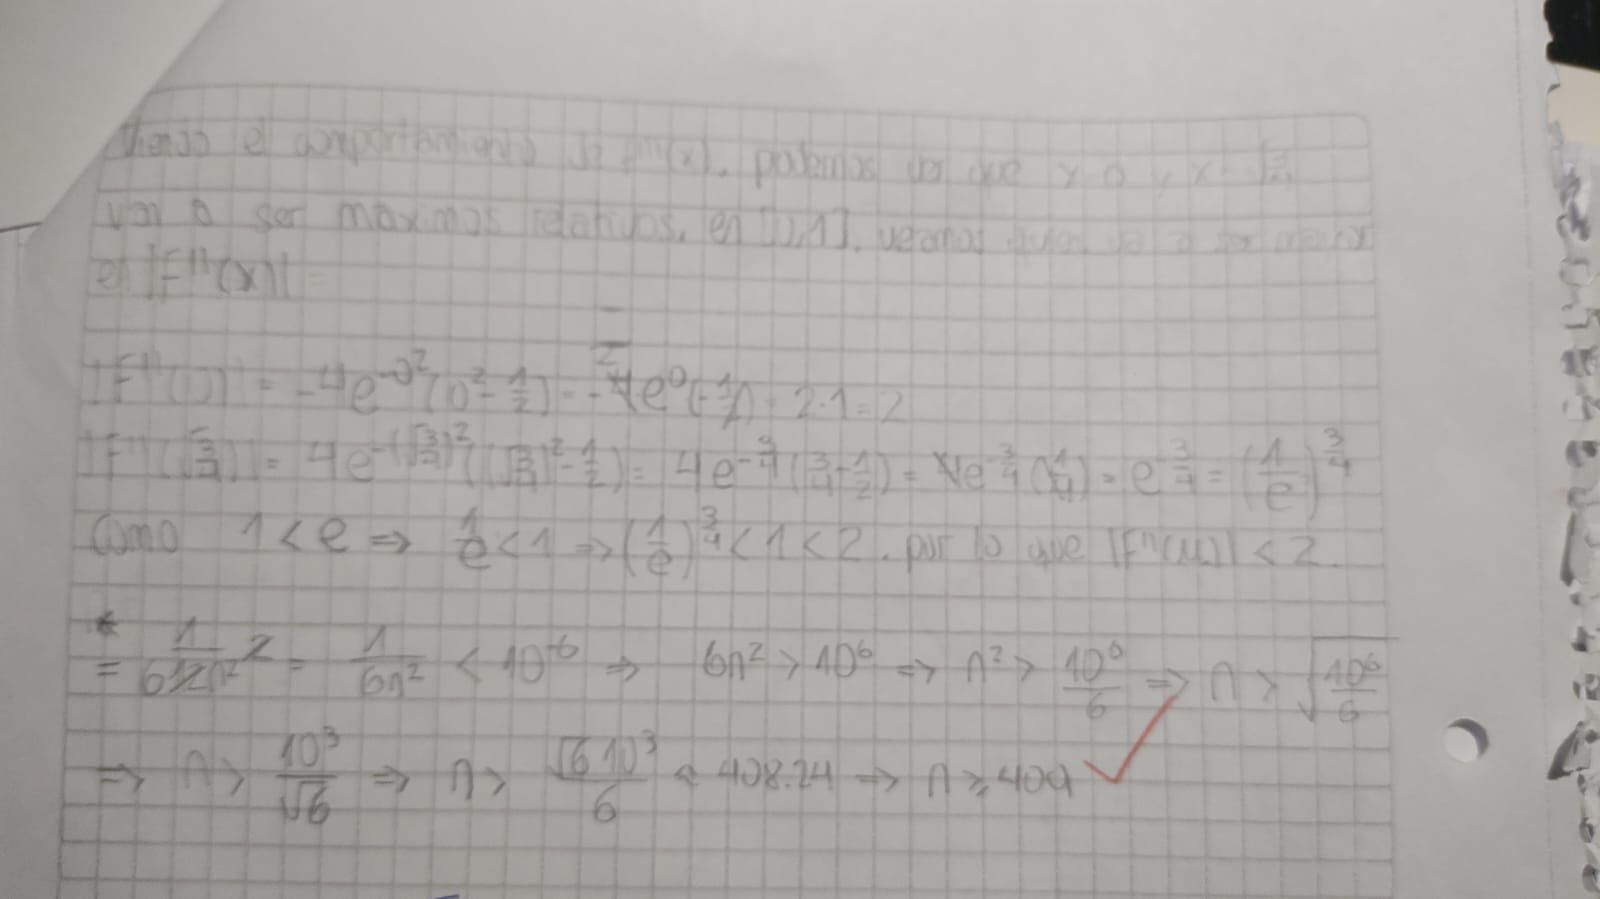 Viendo el comportamiento de f'''(x), podemos ver que x=0 y x=
van a ser máximos relativos, en [0,1], veamos quien va a ser mayor
en |F''(x)|
|F''(0)| = -4e^{-0^2}(0^2-\frac{1}{2}) = -4e^0(-\frac{1}{2}) = 2·1=2
|F''(\sqrt{\frac{3}{4}})| = 4e^{-(\sqrt{\frac{3}{4}})^2}((\sqrt{\frac{3}{4}})^2-\frac{1}{2}) = 4e^{-\frac{3}{4}}(\frac{3}{4}-\frac{1}{2}) = 4e^{-\frac{3}{4}}(\frac{1}{4}) = e^{-\frac{3}{4}} = (\frac{1}{e})^{\frac{3}{4}}
Como 1<e ⇒ \frac{1}{e}<1 ⇒ (\frac{1}{e})^{\frac{3}{4}}<1<2. por lo que |F''(μ)|<2.
* = \frac{1}{12n^2}2 = \frac{1}{6n^2} < 10^{-6} ⇒ 6n^2>10^6 ⇒ n^2 > \frac{10^6}{6} ⇒ n > \sqrt{\frac{10^6}{6}}
⇒ n > \frac{10^3}{\sqrt{6}} ⇒ n > \frac{\sqrt{6} 10^3}{6} ≈ 408.24 ⇒ n ≥ 409